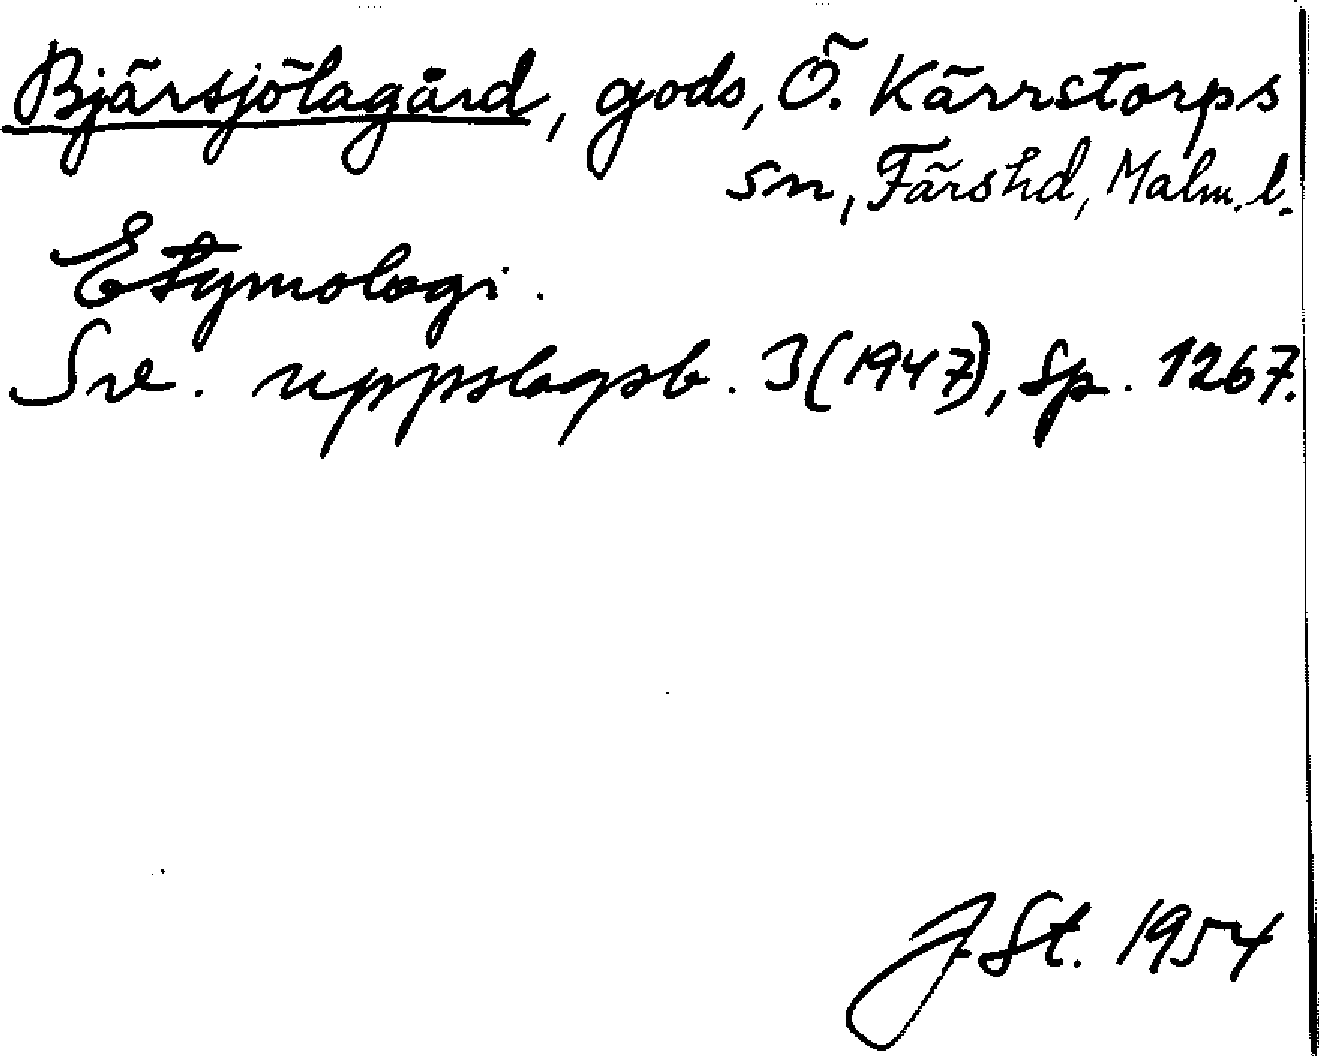 Bjärsjölagård, gods, Ö. Kärrstorps
sn, Färshd, Malm. l.
Etymologi.
Sve. uppslagsb. 3(1947), sp. 1267.
J St. 1954